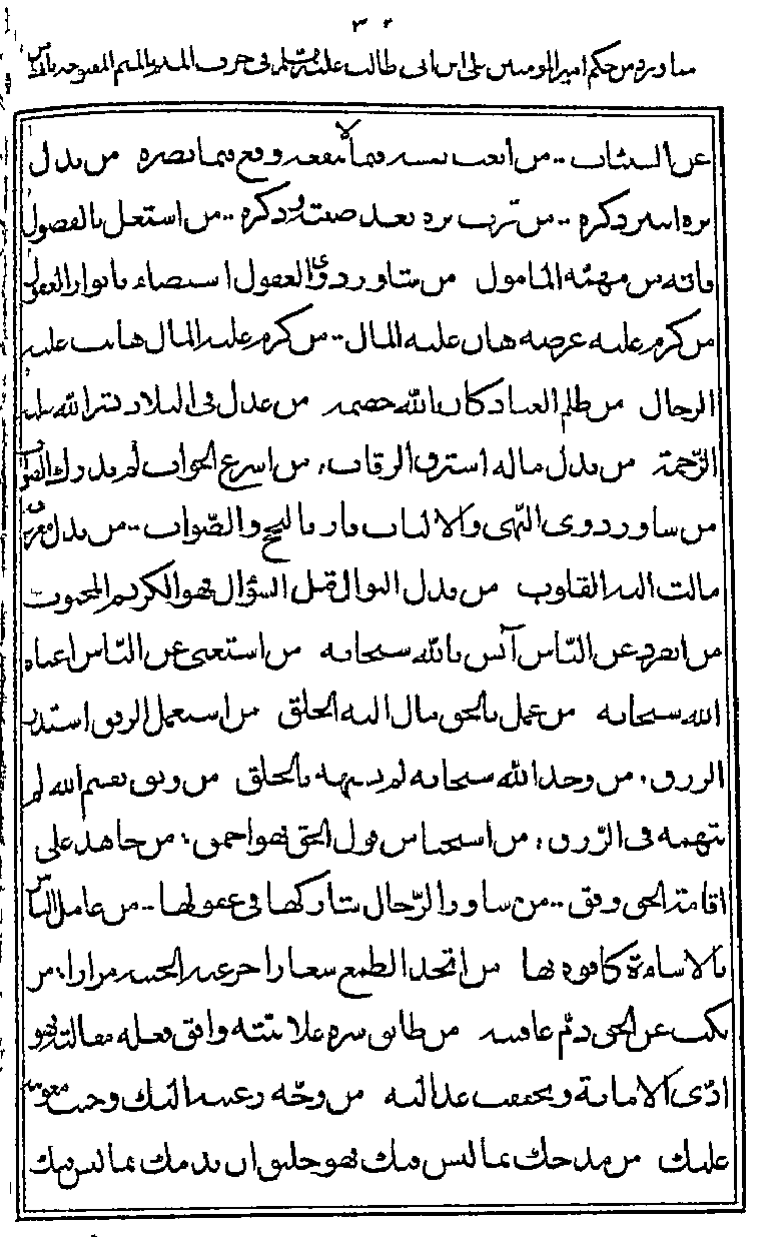 مما ورد من حكم امير المومنين علي ابن ابي طالب عليه السلم في حرف الميم بالميم المفتوحة بلفظ من
عن السيئات من اتعب نفسه فيما لا ينفعه وقع فيما يضره من بذل
بره انتشر ذكره من قرب بره بعد صيته وذكره من اشتغل بالفضول
فاته من مهمته المامول من شاور ذوي العقول استضاء بانوار العقول
من كرم عليه عرضه هان عليه المال من كرم عليه المال هانت عليه
الرجال من ظلم العباد كان الله خصمه من عدل في البلاد نشر الله عليه
الرحمة من بذل ماله استرق الرقاب من اسرع الجواب لم يدرك الصواب
من شاور ذوى النهى والالباب فاز بالنجح والصواب من بذل معروفه
مالت اليه القلوب من بذل النوال قبل السؤال فهو الكريم المحبوب
من انفرد عن الناس آنس بالله سبحانه من استغنى عن الناس اغناه
الله سبحانه من عمل بالحق مال اليه الخلق من استعمل الرفق استدر
الرزق من وحد الله سبحانه لم يشبهه بالخلق من وثق بقسم الله لم
يتهمه في الرزق من استحيا من قول الحق فهو احمق من جاهد على
اقامة الحق وفق من شاور الرجال شاركها في عقولها من عامل الناس
بالاساءة كافوه بها من اتخذ الطمع شعارا جرعته الخيبة مرارا من
نكب عن الحق ذم عاقبته من طابق سره علانيته ووافق فعله مقالته فهو
ادى الامانة وتحققت عدالته من وجه رغبته اليك وجبت معونته
عليك من مدحك بما ليس فيك فهو خليق ان يذمك بما ليس فيك